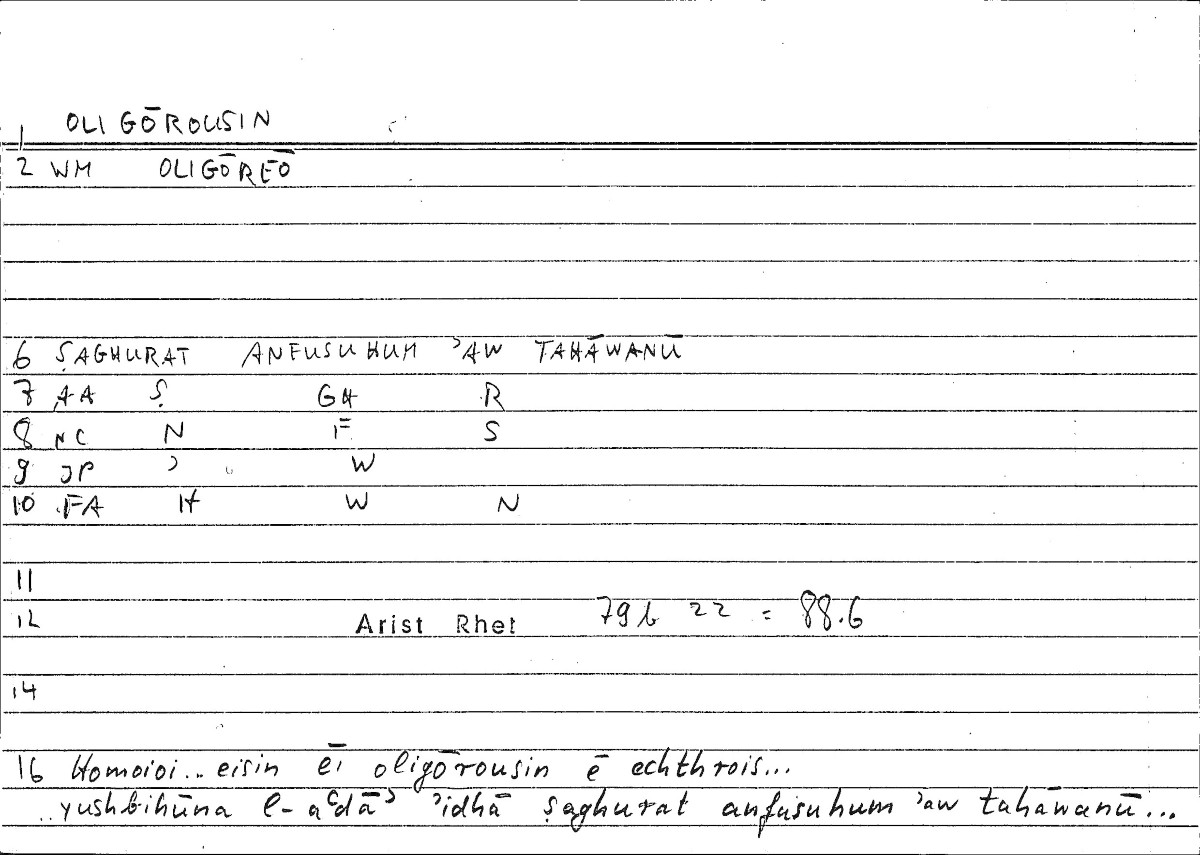 1 OLIGŌROUSIN
2 WM OLIGŌREŌ
6 ṢAGHURAT ANFUSUHUM ʾAW TAHĀWANŪ
7 AA Ṣ GH R
8 NC N F S
9 JP ʾ W
10 FA H W N
11
12 Arist Rhet 79b 22 = 88.6
14
16 Homoioi.. eisin ēi oligōrousin ē echthrois...
..yushbihūna l-aʿdāʾ ʾidhā ṣaghurat anfusuhum ʾaw tahāwanū...